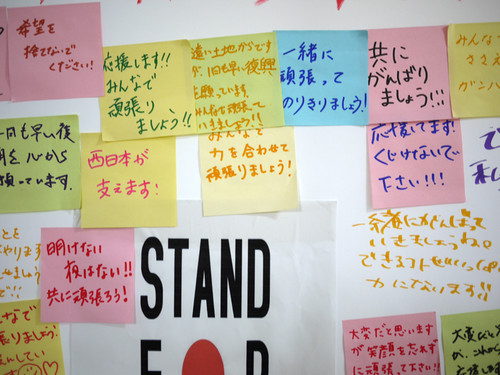 希望を
捨てないで
ください!
応援します!!
みんなで
頑張り
ましょう!!
遠い土地からです
が、1日も早い復興
を願っています。
みんなで
力を合わせて
頑張りましょう!
一緒に
頑張って
のりきりましょう!
共に
がんばり
ましょう!!!
みんな
ささえ
一日も早い復
心から
願っています.
西日本が
支えます!
応援してます!
くじけないで
下さい!!!
明けない
夜はない!!
共に頑張ろう!
一緒にがんばって
いきましょうね。
できること
力になります!!
STAND
大変だと思います
が笑顔を忘れず
に頑張って下さい!!